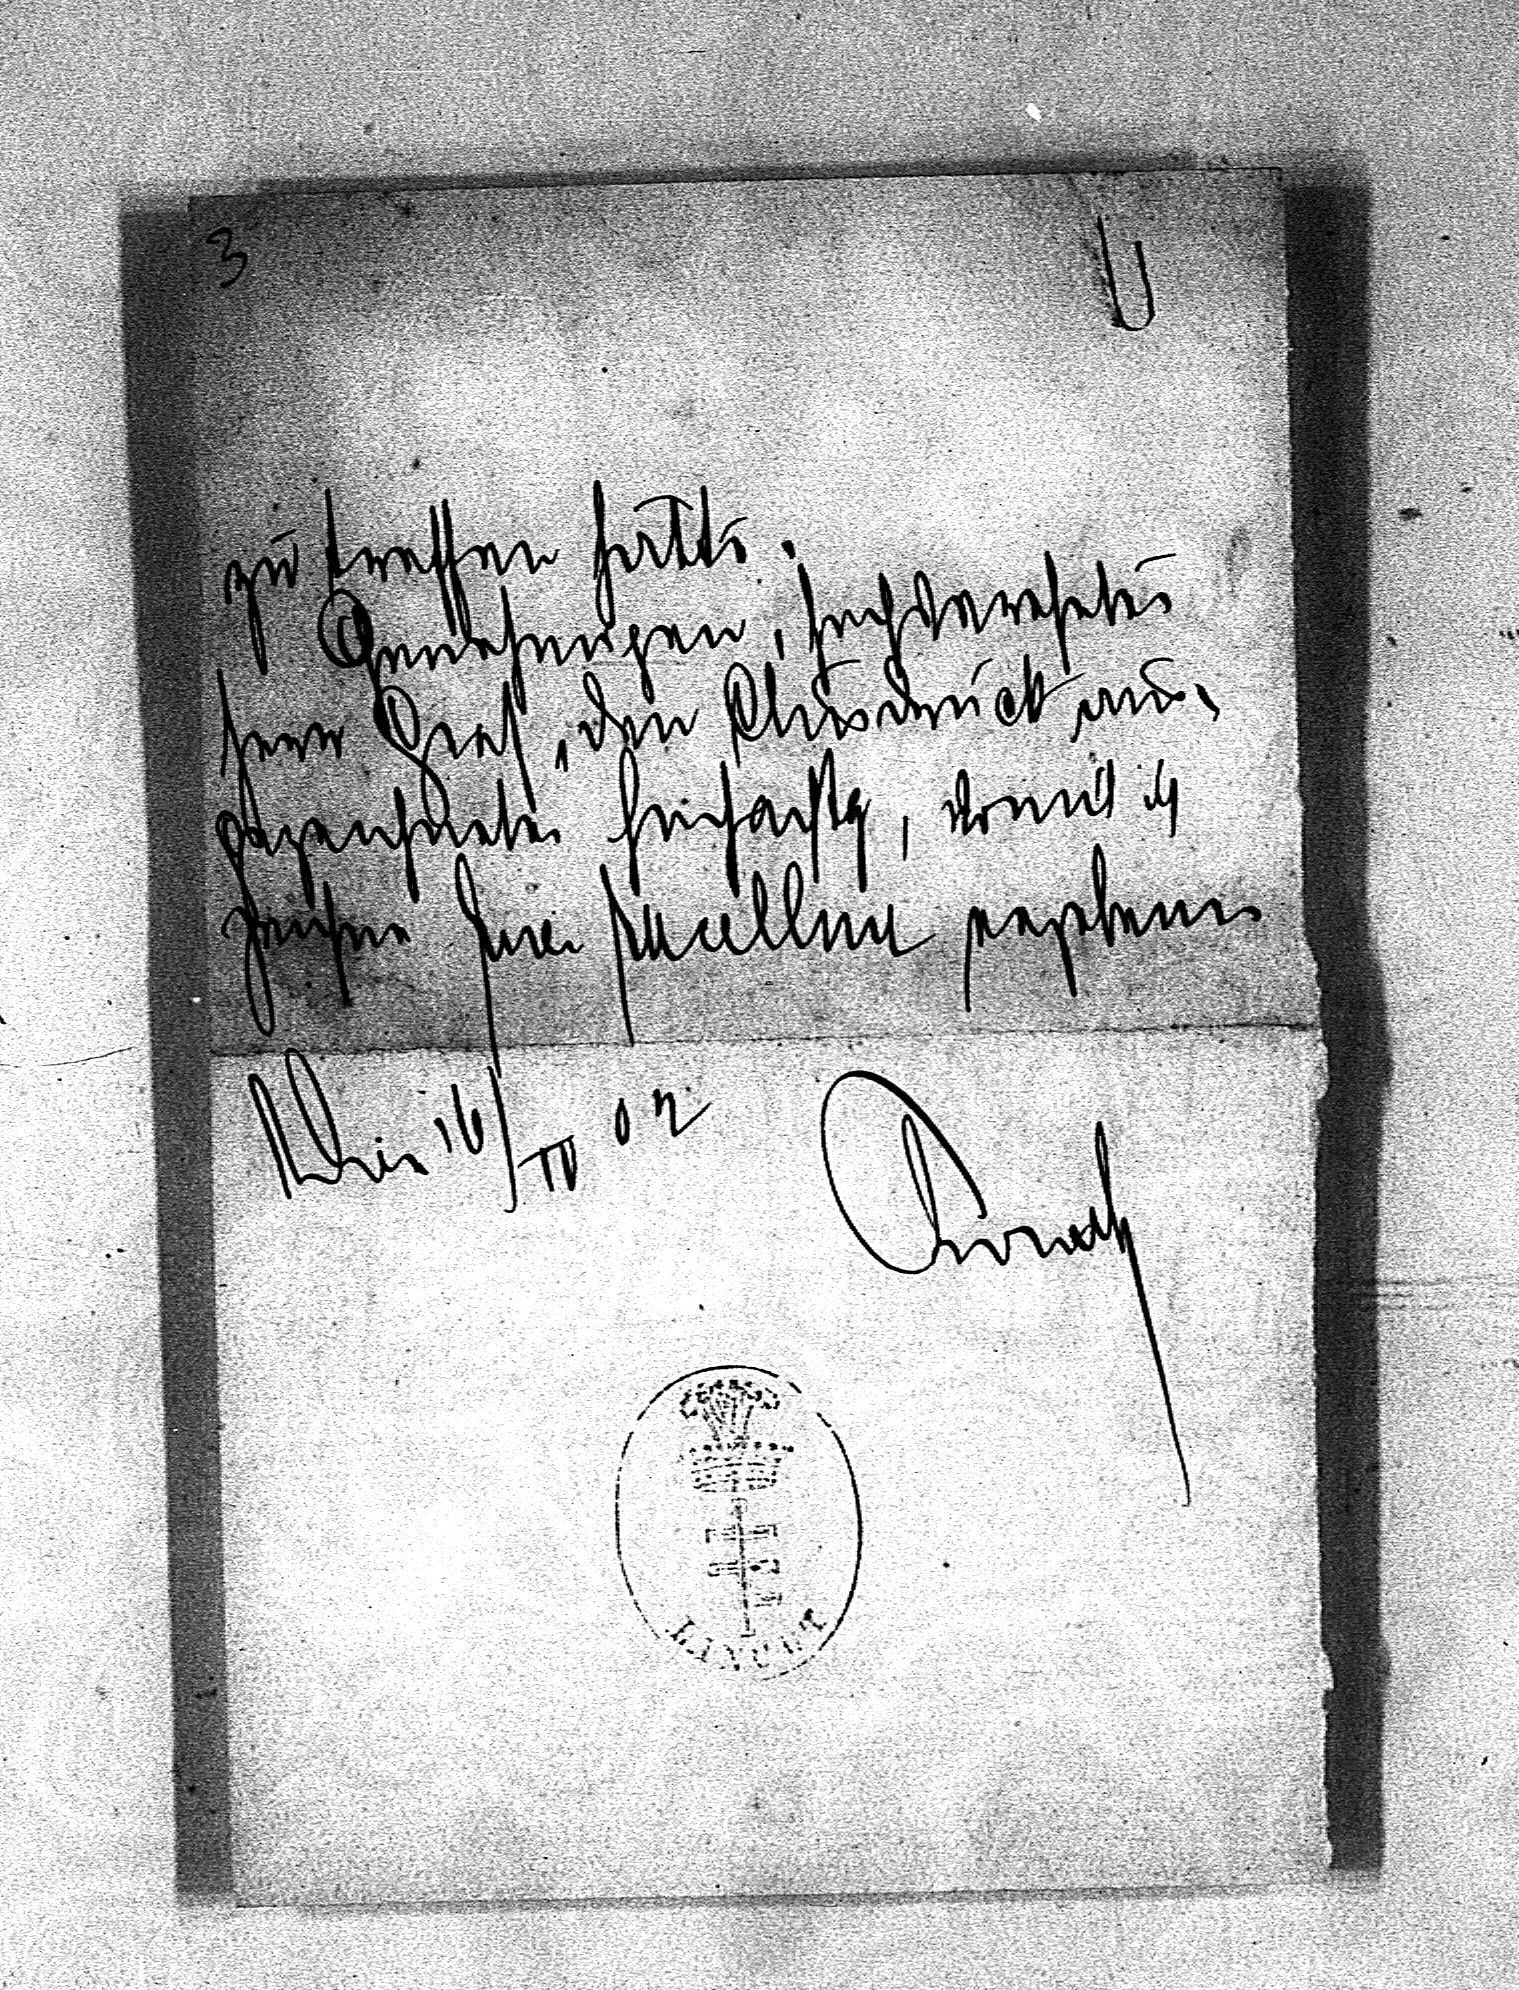 3
zu treffen hätte.
Genehmigen, hochverehrter
Herr Graf, den Ausdruck aus-
gezeichneter Hochachtg, womit ich
zeichne Euer Excellenz ergebener
Wien 16/IV 02
LANCUT